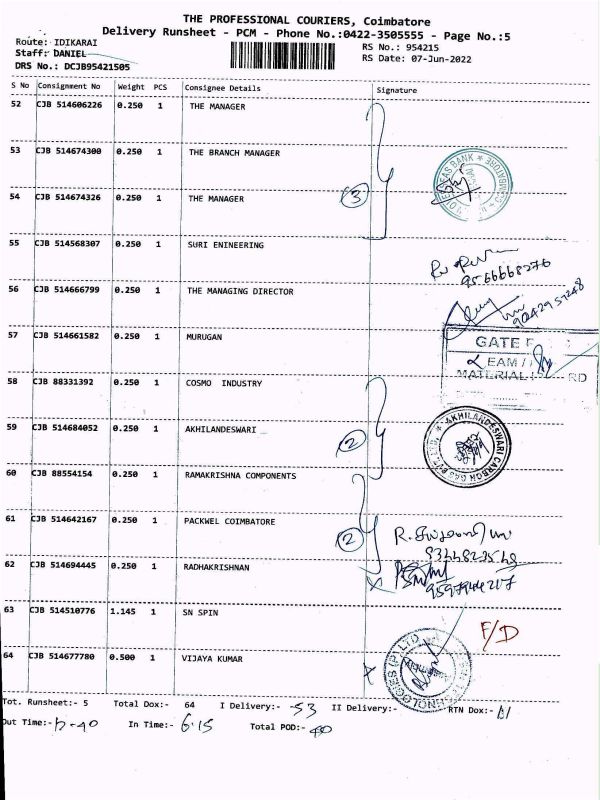 THE PROFESSIONAL COURIERS, Coimbatore
Delivery Runsheet - PCM - Phone No.:0422-3505555 - Page No.:5
Route: IDIKARAI
Staff: DANIEL
DRS No.: DCJB95421505
RS No.: 954215
RS Date: 07-Jun-2022
S No Consignment No Weight PCS Consignee Details Signature
52 CJB 514606226 0.250 1 THE MANAGER
53 CJB 514674300 0.250 1 THE BRANCH MANAGER
54 CJB 514674326 0.250 1 THE MANAGER
3
55 CJB 514568307 0.250 1 SURI ENINEERING
9566668276
56 CJB 514666799 0.250 1 THE MANAGING DIRECTOR
57 CJB 514661582 0.250 1 MURUGAN
GATE
58 CJB 88331392 0.250 1 COSMO INDUSTRY
59 CJB 514684052 0.250 1 AKHILANDESWARI
2
AKHILANDESWARI CARBON GAS PVT. LTD.
60 CJB 88554154 0.250 1 RAMAKRISHNA COMPONENTS
61 CJB 514642167 0.250 1 PACKWEL COIMBATORE
2
62 CJB 514694445 0.250 1 RADHAKRISHNAN
63 CJB 514510776 1.145 1 SN SPIN
F/D
64 CJB 514677780 0.500 1 VIJAYA KUMAR
Tot. Runsheet:- 5 Total Dox:- 64 I Delivery:- 53 II Delivery:- RTN Dox:- 11
Out Time:- In Time:- 6.15 Total POD:- 40